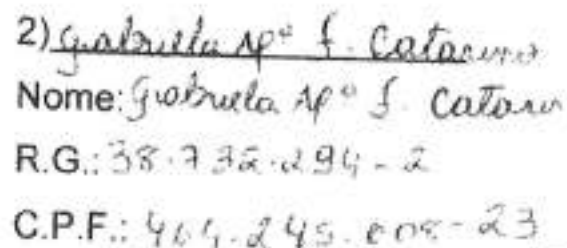 2) Gabriela Apª f. Catarino
Nome: Gabriela Apª f. Catarin
R.G.: 38.732.294-2
C.P.F.: